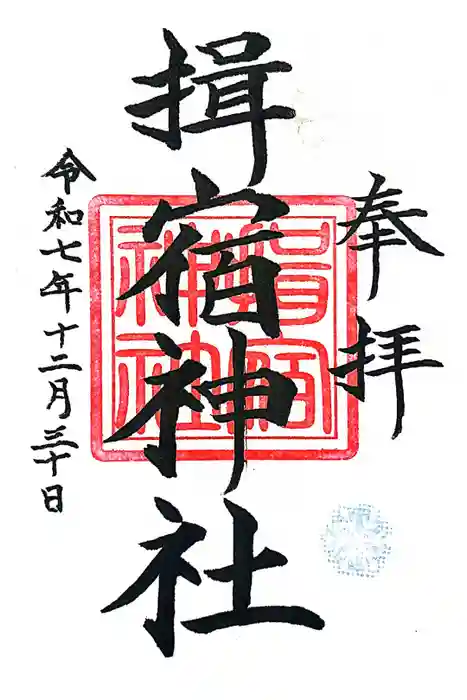 奉拝
揖宿神社
令和七年十二月三十日